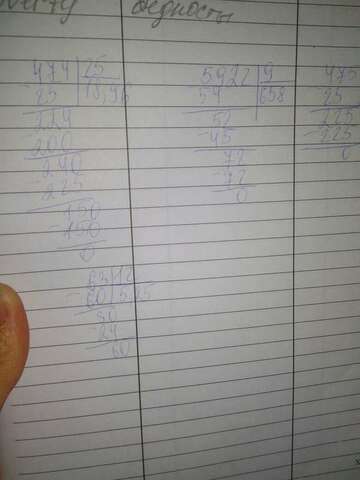 бедность
474 25
25 18,96
224
200
240
225
150
150
0
5922 9
54 658
52
45
72
72
0
475
25
225
225
0
63 12
60 5,25
30
24
60